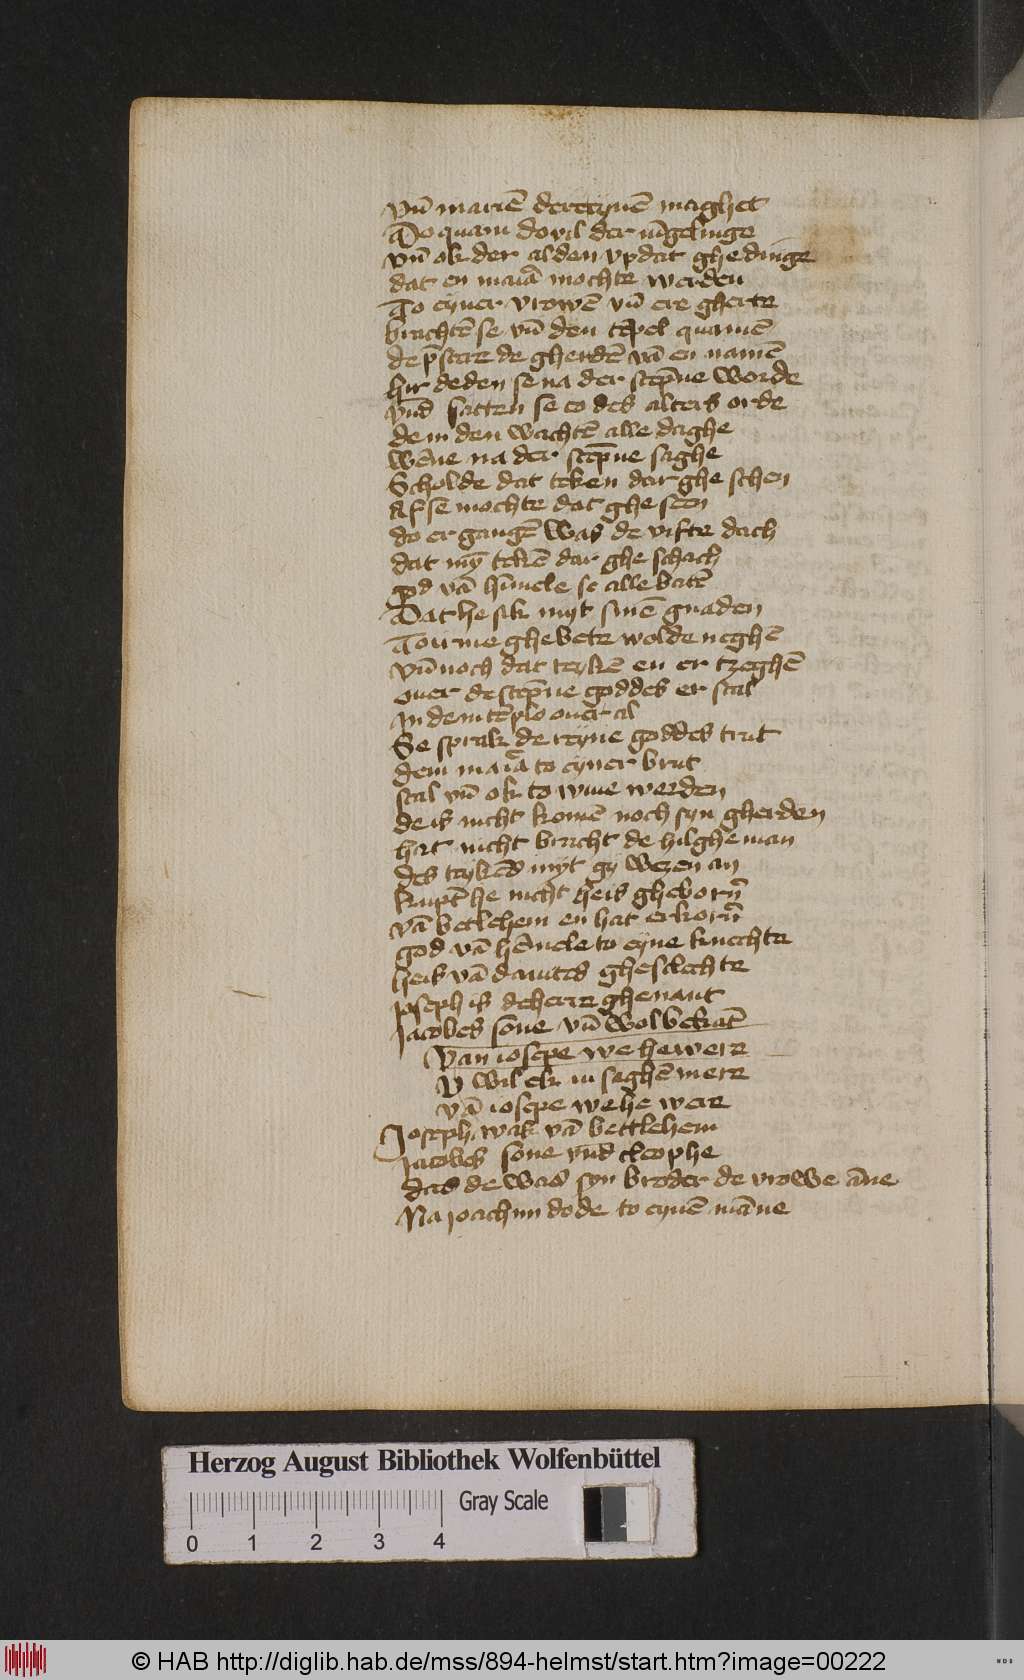 vn̄ mariē der reynē maghet
Do quam do vil der iu̅gelinge
vn̄ ok der alden vp dat ghedinge
dat en maria mochte werden
To eyner vrowē vn̄ ere gherte
brachtē se vn̄ den tēpel quamē
de p̄ster de gherdē vā en namē
hir deden se na der stēpne worde
vnd̄ satten se to des alters orde
dem den wachtē alle daghe
wēne na der stēpne saghe
Scholde dat teken dar ghe schen
Af se mochte dat ghe seen
do er gangē was de vifte dach
dat my̅ tekē dar ghe schach
god vā hi̅mele se alle batē
Dat he sik myt sinē gnaden
To erme ghebete wolde neghē
vn̄ noch dat teykē en er tzeghē
ouer de stēpne goddes er scal
in dem tēplo ouer al
Se sprak de reyne goddes trut
dem maria to eyner brut
scal vn̄ ok to wiue werden
de is nicht komē noch syn gherden
hat nicht bracht de hilghe man
des teykēs myt gy wezen an
ku̅pt he nicht he is gheborn̄
vā betlehem en hat erkorn̄
god vā hēmele to eyne knechte
he is vā dauites ghesclechte
joseph is de herre ghenant
jacobes sone vn̄ wol bekāt
Van iosepe we he were
V wil ek iu seghē mere
vā iosepe we he were
Joseph was vā bettlehem
jacobes sone vnd̄ cleophe
das de was syn broder de vrowe āne
Na joachim dode to eynē māne
Herzog August Bibliothek Wolfenbüttel
Gray Scale
0 1 2 3 4
© HAB http://diglib.hab.de/mss/894-helmst/start.htm?image=00222